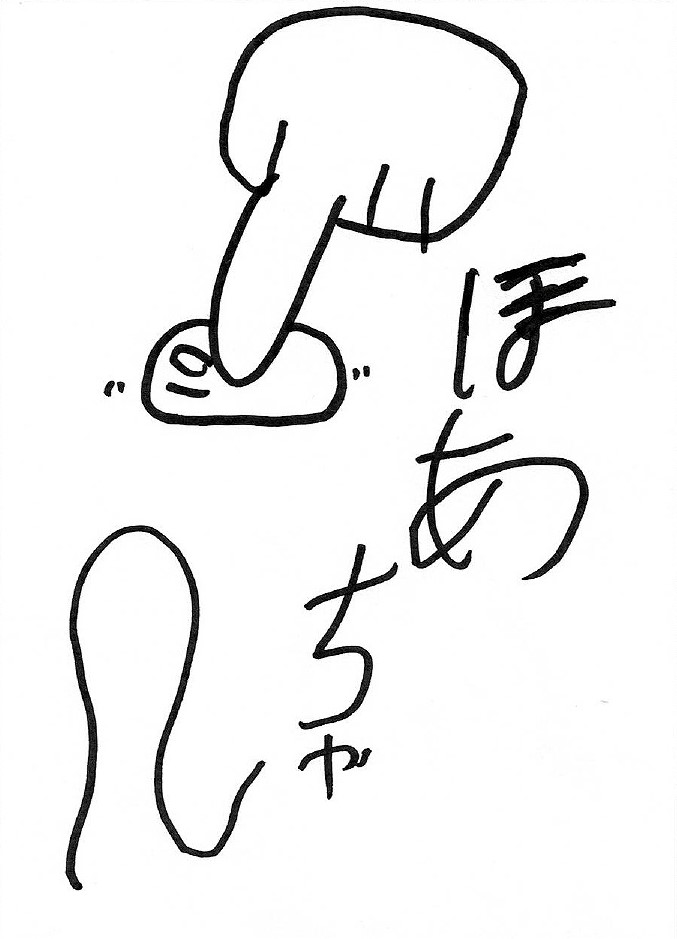 ほあちゃ～